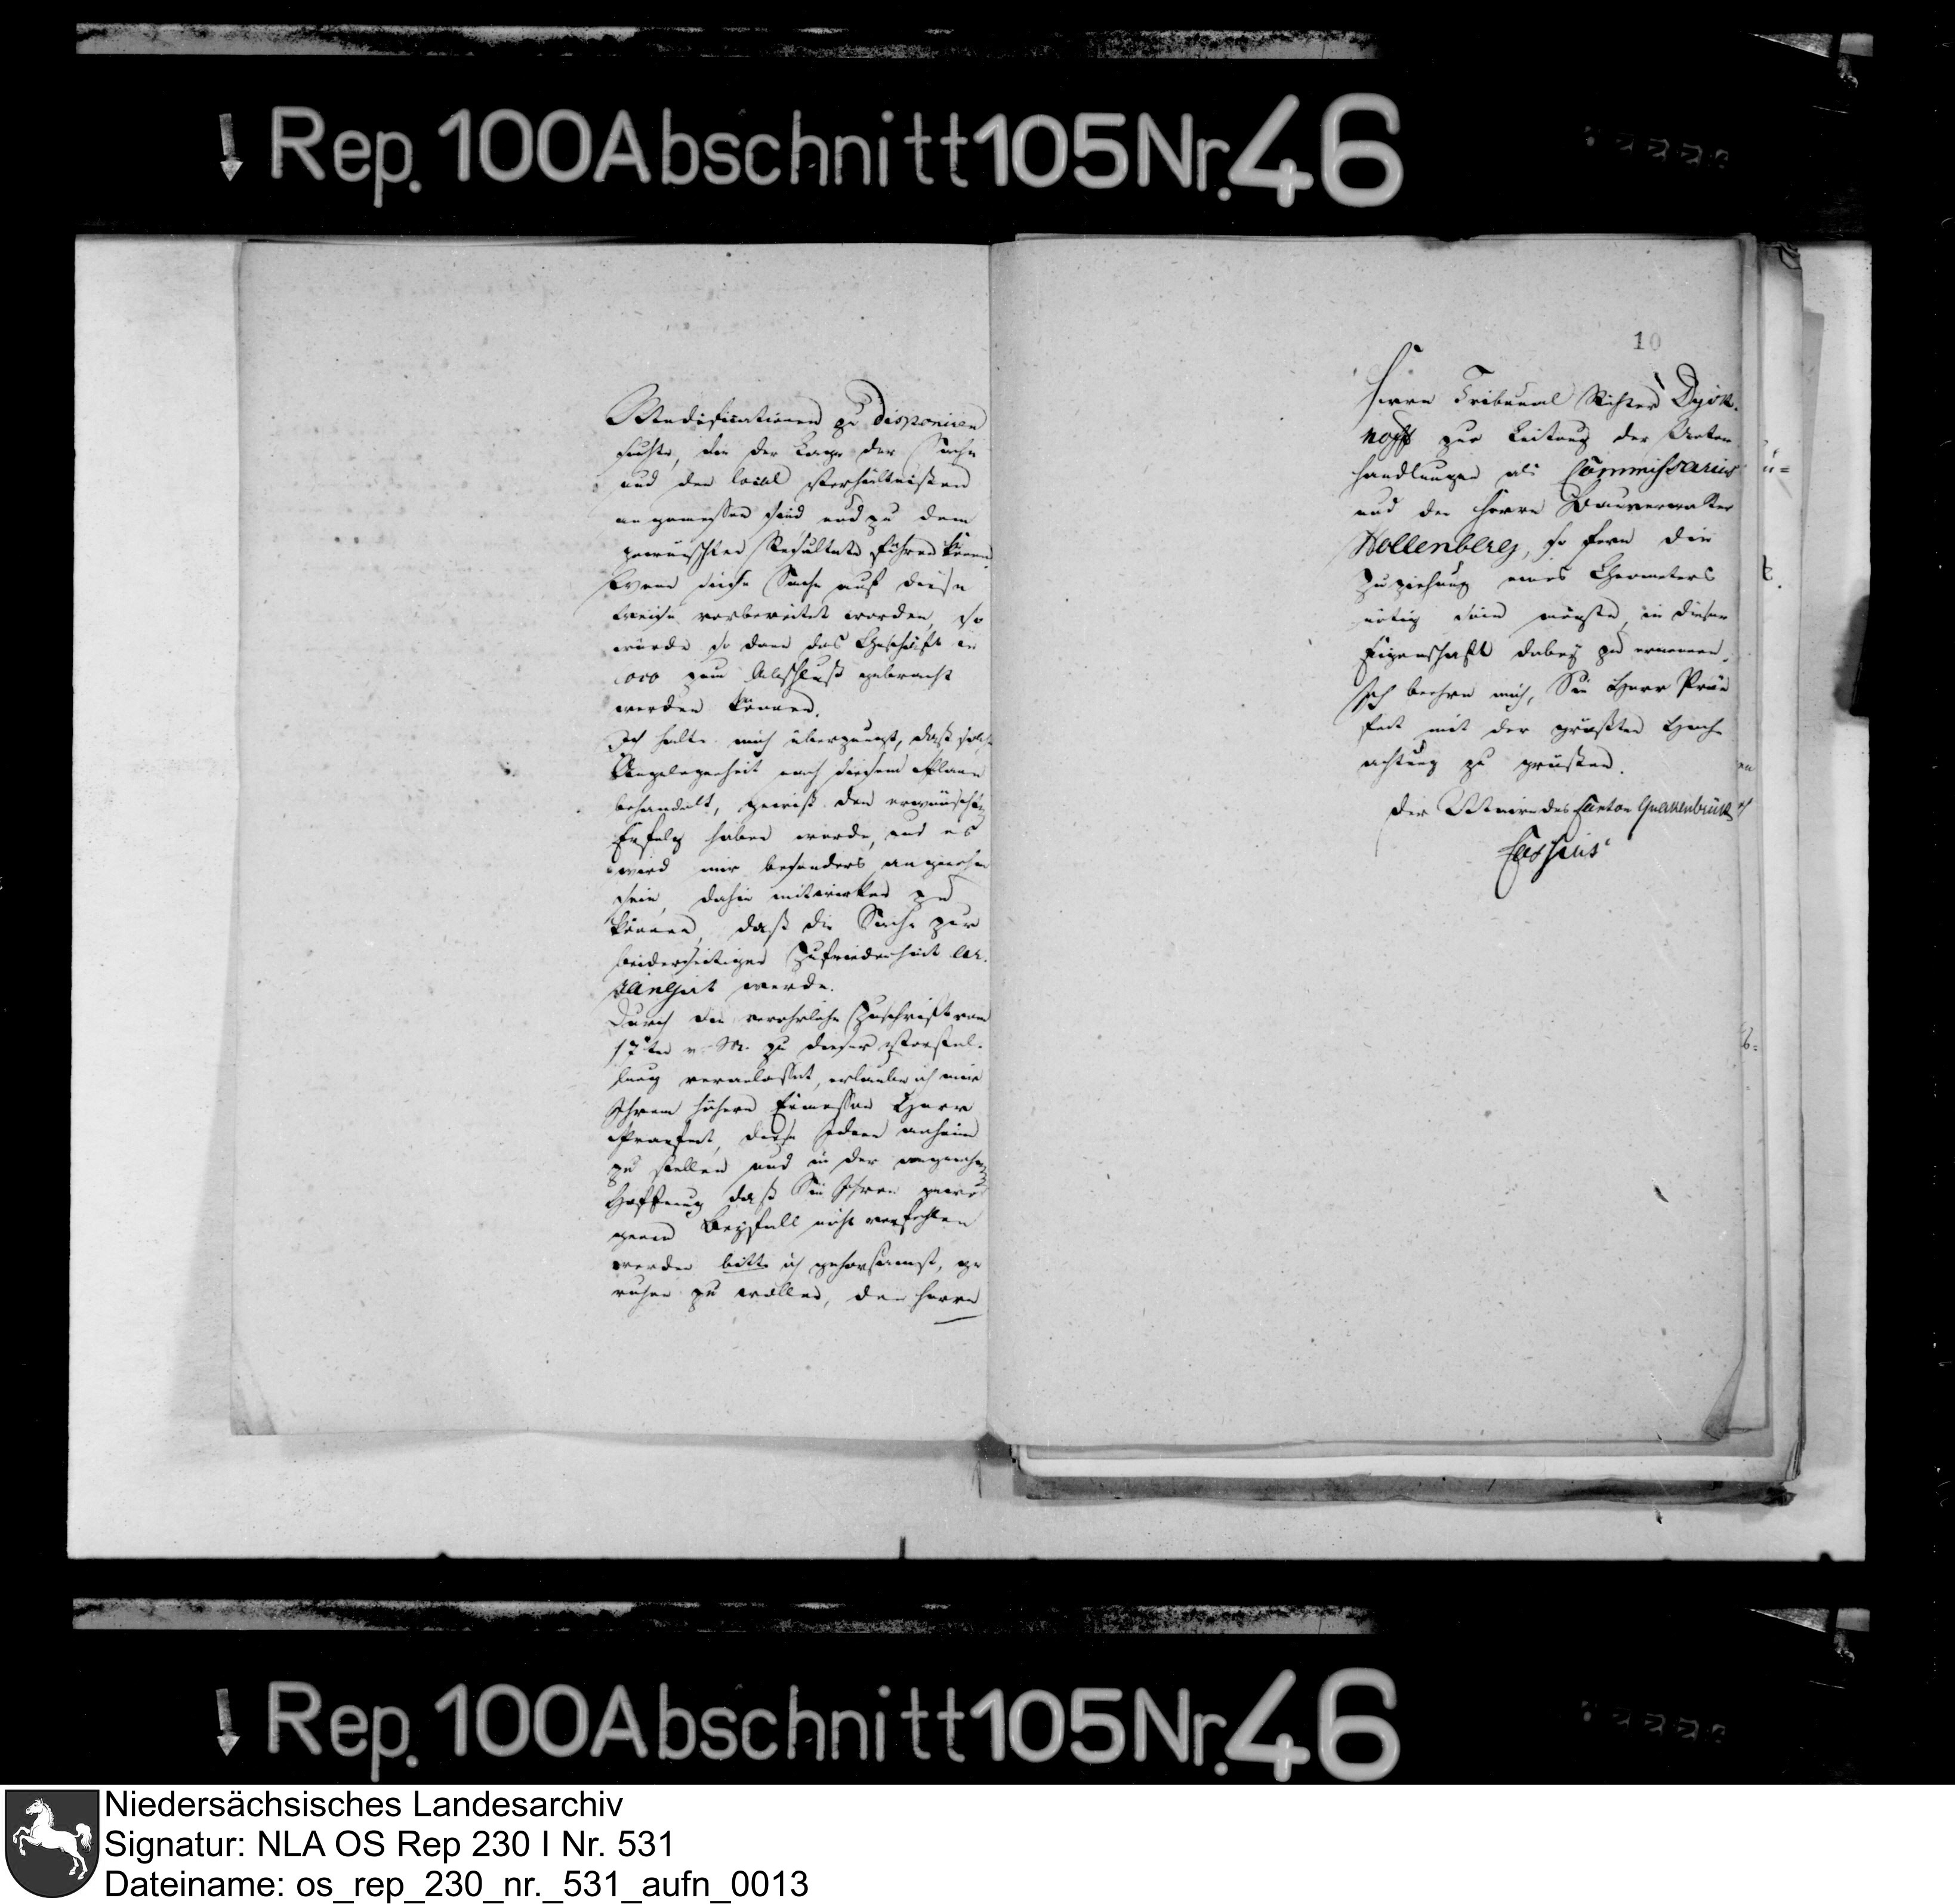 Rep. 100 Abschnitt 105 Nr. 46
Modificationen zu disponiren
suchte, die der Lage der Sache
und den local Verhältnißen
angemessen sind und zu dem
gewünschten Resultate führen können.
Wenn diese Sache auf diese
Weise vorbereitet worden, so
würde so dann das Geschäft in
loco zum Abschluß gebracht
werden können.
Ich halte mich überzeugt, daß solche
Angelegenheit nach diesem Plane
behandelt, gewiß den erwünschten
Erfolg haben werde, und es
wird mir besonders angenehm
sein, dahin mitwirken zu
können, daß die Sache zur
beiderseitigen Zufriedenheit ar-
rangirt werde.
Durch die verehrliche Zuschrift vom
17ten v. M. zu dieser Vorstel-
lung veranlasset, erlaube ich mir
Ihrem höhern Ermessen Herr
Praefect, diese Ideen anheim
zu stellen und in der angenehmen
Hoffnung daß Sie Ihren gewo
genen Beyfall nicht verfehlen
werden bitte ich gehorsamst, ge
ruhen zu wollen, den Herrn
10
Herrn Tribunal Richter Dyck-
hoff zur Leitung der Unter
handlungen als Commissarius
und den Herrn Bauverwalter
Hollenberg, so fern die
Zuziehung eines Geometers
nötig sein mögte, in dieser
Eigenschaft dabey zu ernennen.
Ich beehre mich, Sie Herr Prae
fect mit der größten Hoch
achtung zu grüßen.
Der Maire des Canton Quakenbrück
Cassius
ü=
t.
en
b=
Rep. 100 Abschnitt 105 Nr. 46
Niedersächsisches Landesarchiv
Signatur: NLA OS Rep 230 I Nr. 531
Dateiname: os_rep_230_nr._531_aufn_0013